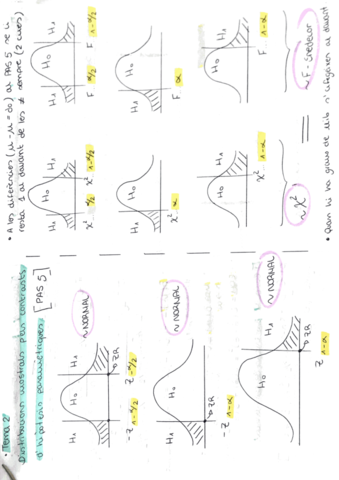 • Tema 2
Distribucions mostrals per contrasts
d'hipòtesis paramètriques [PAS 5]
~ NORMAL
H1 H0 H1
-Z 1-α/2 Z 1-α/2 → ZR
~ NORMAL
H1 H0
-Z 1-α → ZR
~ NORMAL
H0 H1
Z 1-α → ZR
• A les diferències (μ - μ = do) al PAS 5 se li
resta 1 al davant de les sempre (2 cues)
H1 H0 H1
χ² α/2 χ² 1-α/2
H0
χ² α
H0 H1
χ² 1-α
~ χ²
H1 H0 H1
F α/2 F 1-α/2
H0
F α
H0 H1
F 1-α
~ F - Snedecor
=
• Quan hi ha graus de llib. s'afegeixen al davant